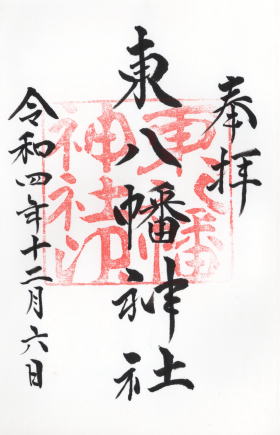 奉拝
東八幡神社
令和四年十二月六日
東八幡
神社印